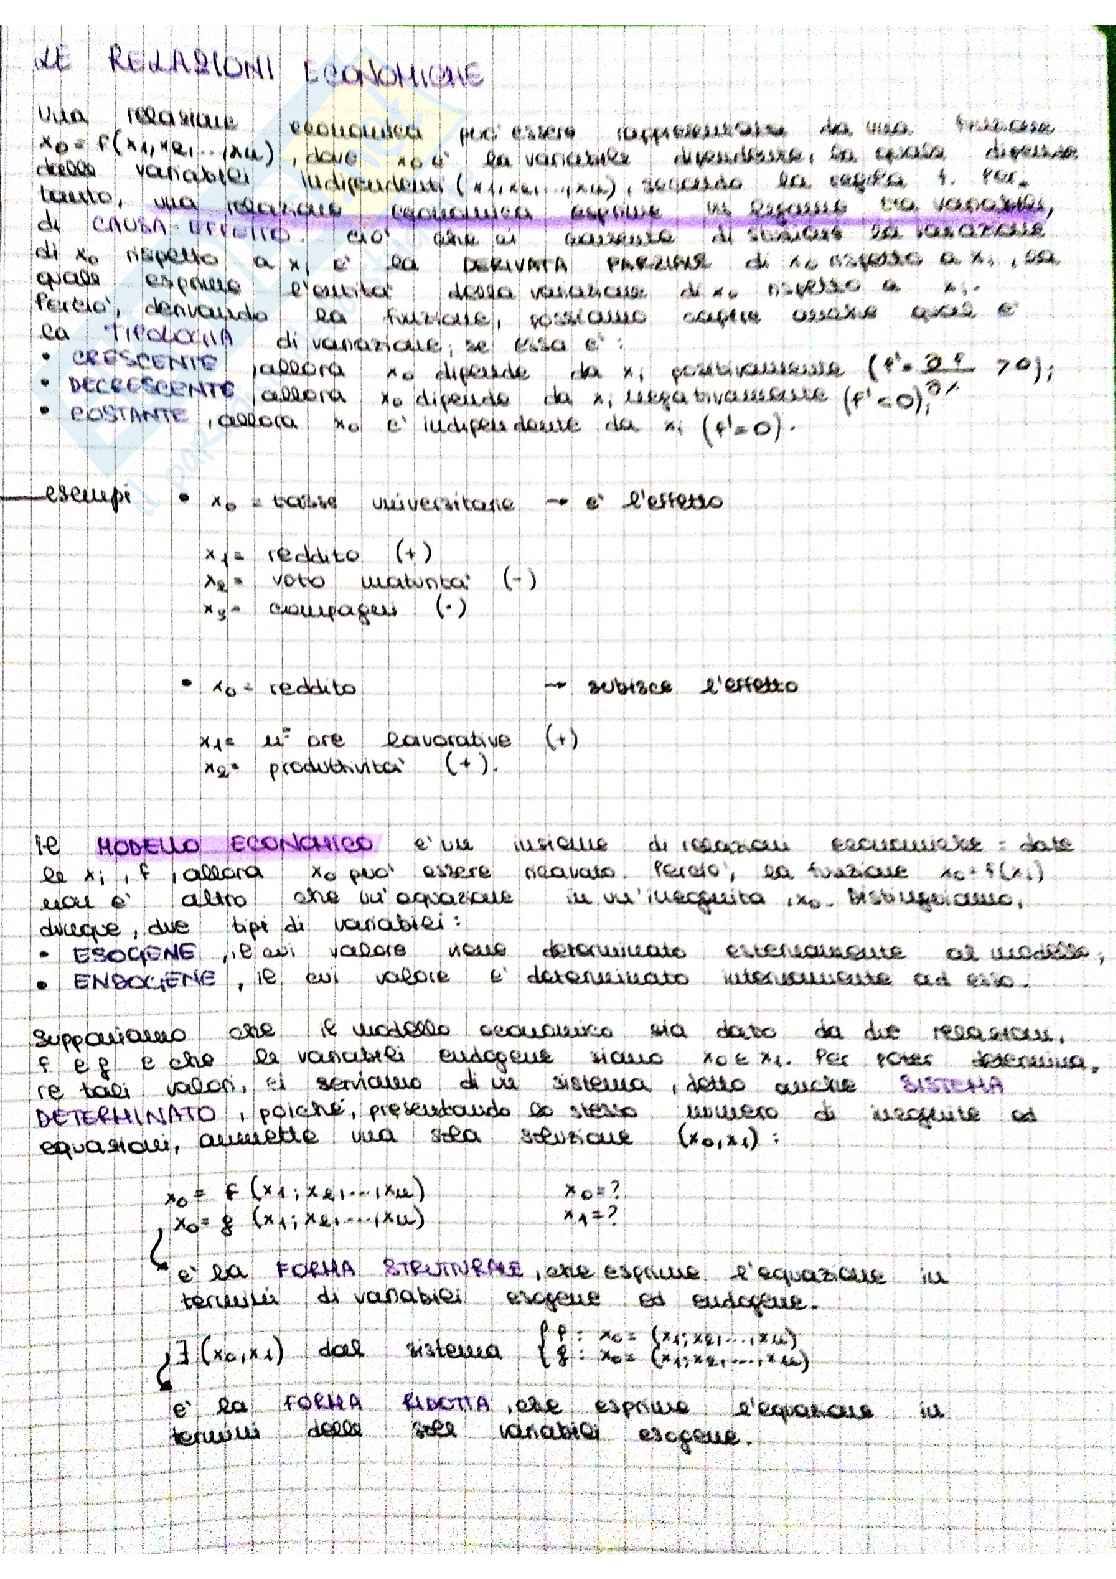 LE RELAZIONI ECONOMICHE
Una relazione economica può essere rappresentata da una funzione
x₀ = f(x₁,x₂,...,xₙ), dove x₀ è la variabile dipendente, la quale dipende
dalle variabili indipendenti (x₁,x₂,...,xₙ), secondo la regola f. Per-
tanto, una relazione economica esprime un legame tra variabili,
di CAUSA-EFFETTO. Ciò che ci consente di studiare la variazione
di x₀ rispetto a xᵢ è la DERIVATA PARZIALE di x₀ rispetto a xᵢ, la
quale esprime l'entità della variazione di x₀ rispetto a xᵢ.
Perciò, derivando la funzione, possiamo capire anche qual è
la TIPOLOGIA di variazione; se essa è:
• CRESCENTE, allora x₀ dipende da xᵢ positivamente (f' = ∂f/∂x > 0);
• DECRESCENTE, allora x₀ dipende da xᵢ negativamente (f' < 0);
• COSTANTE, allora x₀ è indipendente da xᵢ (f' = 0).
esempi • x₀ = tasse universitarie → è l'effetto
x₁ = reddito (+)
x₂ = voto maturità (-)
x₃ = compagni (·)
• x₀ = reddito → subisce l'effetto
x₁ = n° ore lavorative (+)
x₂ = produttività (+).
Il MODELLO ECONOMICO è un insieme di relazioni economiche: date
le xᵢ, f, allora x₀ può essere ricavato. Perciò, la funzione x₀ = f(xᵢ)
non è altro che un'equazione in un'incognita, x₀. Distinguiamo,
dunque, due tipi di variabili:
• ESOGENE, il cui valore viene determinato esternamente al modello;
• ENDOGENE, il cui valore è determinato internamente ad esso.
Supponiamo che il modello economico sia dato da due relazioni,
f e g e che le variabili endogene siano x₀ e x₁. Per poter determina-
re tali valori, ci serviamo di un sistema, detto anche SISTEMA
DETERMINATO, poiché, presentando lo stesso numero di incognite ed
equazioni, ammette una sola soluzione (x₀,x₁):
x₀ = f (x₁; x₂,...,xₙ) x₀ = ?
x₀ = g (x₁; x₂,...,xₙ) x₁ = ?
è la FORMA STRUTTURALE, che esprime l'equazione in
termini di variabili esogene ed endogene.
∃ (x₀,x₁) dal sistema { f : x₀ = (x₁; x₂,...,xₙ)
{ g : x₀ = (x₁; x₂,...,xₙ)
è la FORMA RIDOTTA, che esprime l'equazione in
termini delle sole variabili esogene.